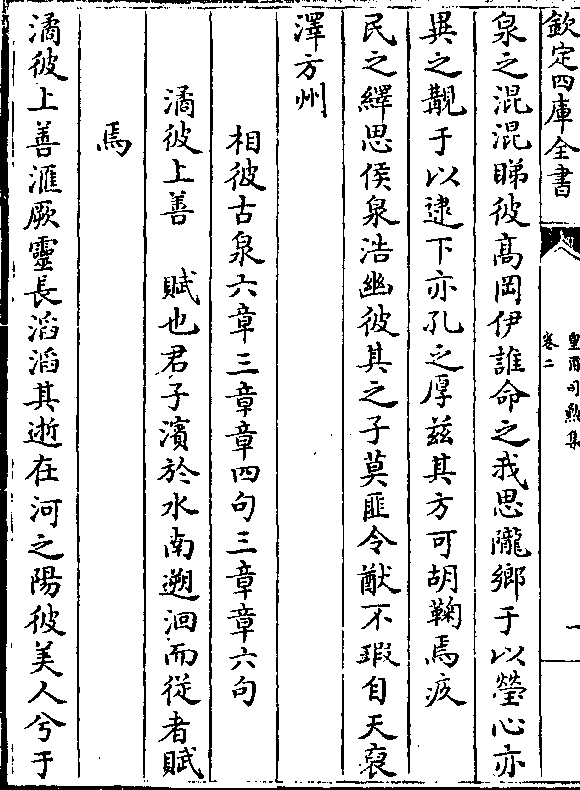 欽定四庫全書
卷二
泉之混混睇彼高岡伊誰命之我思隴鄉于以瑩心亦
異之覯于以逮下亦孔之厚兹其方可胡鞠焉疚
民之繹思侯泉浩幽彼其之子莫匪令猷不瑕自天裒
澤方州
相彼古泉六章三章章四句三章章六句
潏彼上善　賦也君子濱於水南遡洄而從者賦
焉
潏彼上善滙厥靈長滔滔其逝在河之陽彼美人兮于